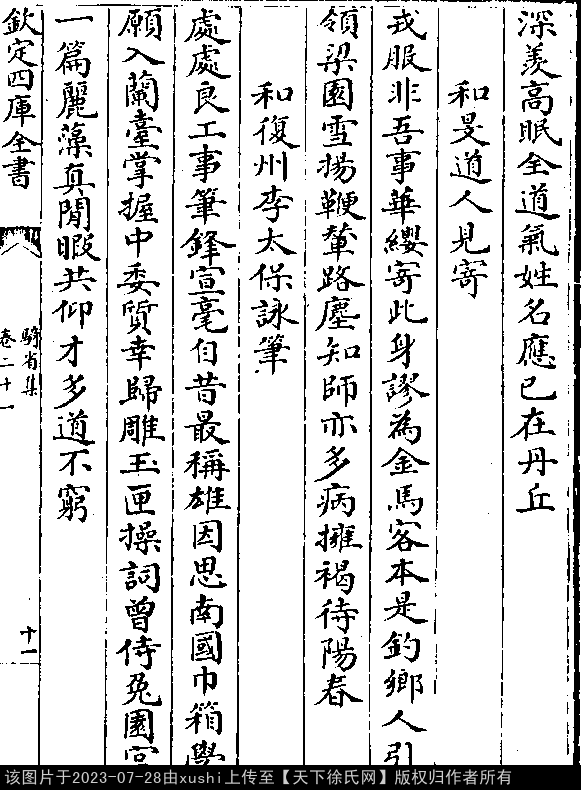 深羡高眠全道氣姓名應已在丹丘
和旻道人見寄
戎服非吾事華纓寄此身謬為金馬客本是釣鄉人引
領梁園雪揚鞭輦路塵知師亦多病擁褐待陽春
和復州李太保詠筆
處處良工事筆鋒宣毫自昔最稱雄因思南國巾箱學
願入蘭臺掌握中委質幸歸雕玉匣操詞曾侍兔園宮
一篇麗藻真閒暇共仰才多道不窮
欽定四庫全書
騎省集
卷二十一
十一
该图片于2023-07-28由xushi上传至【天下徐氏网】版权归作者所有